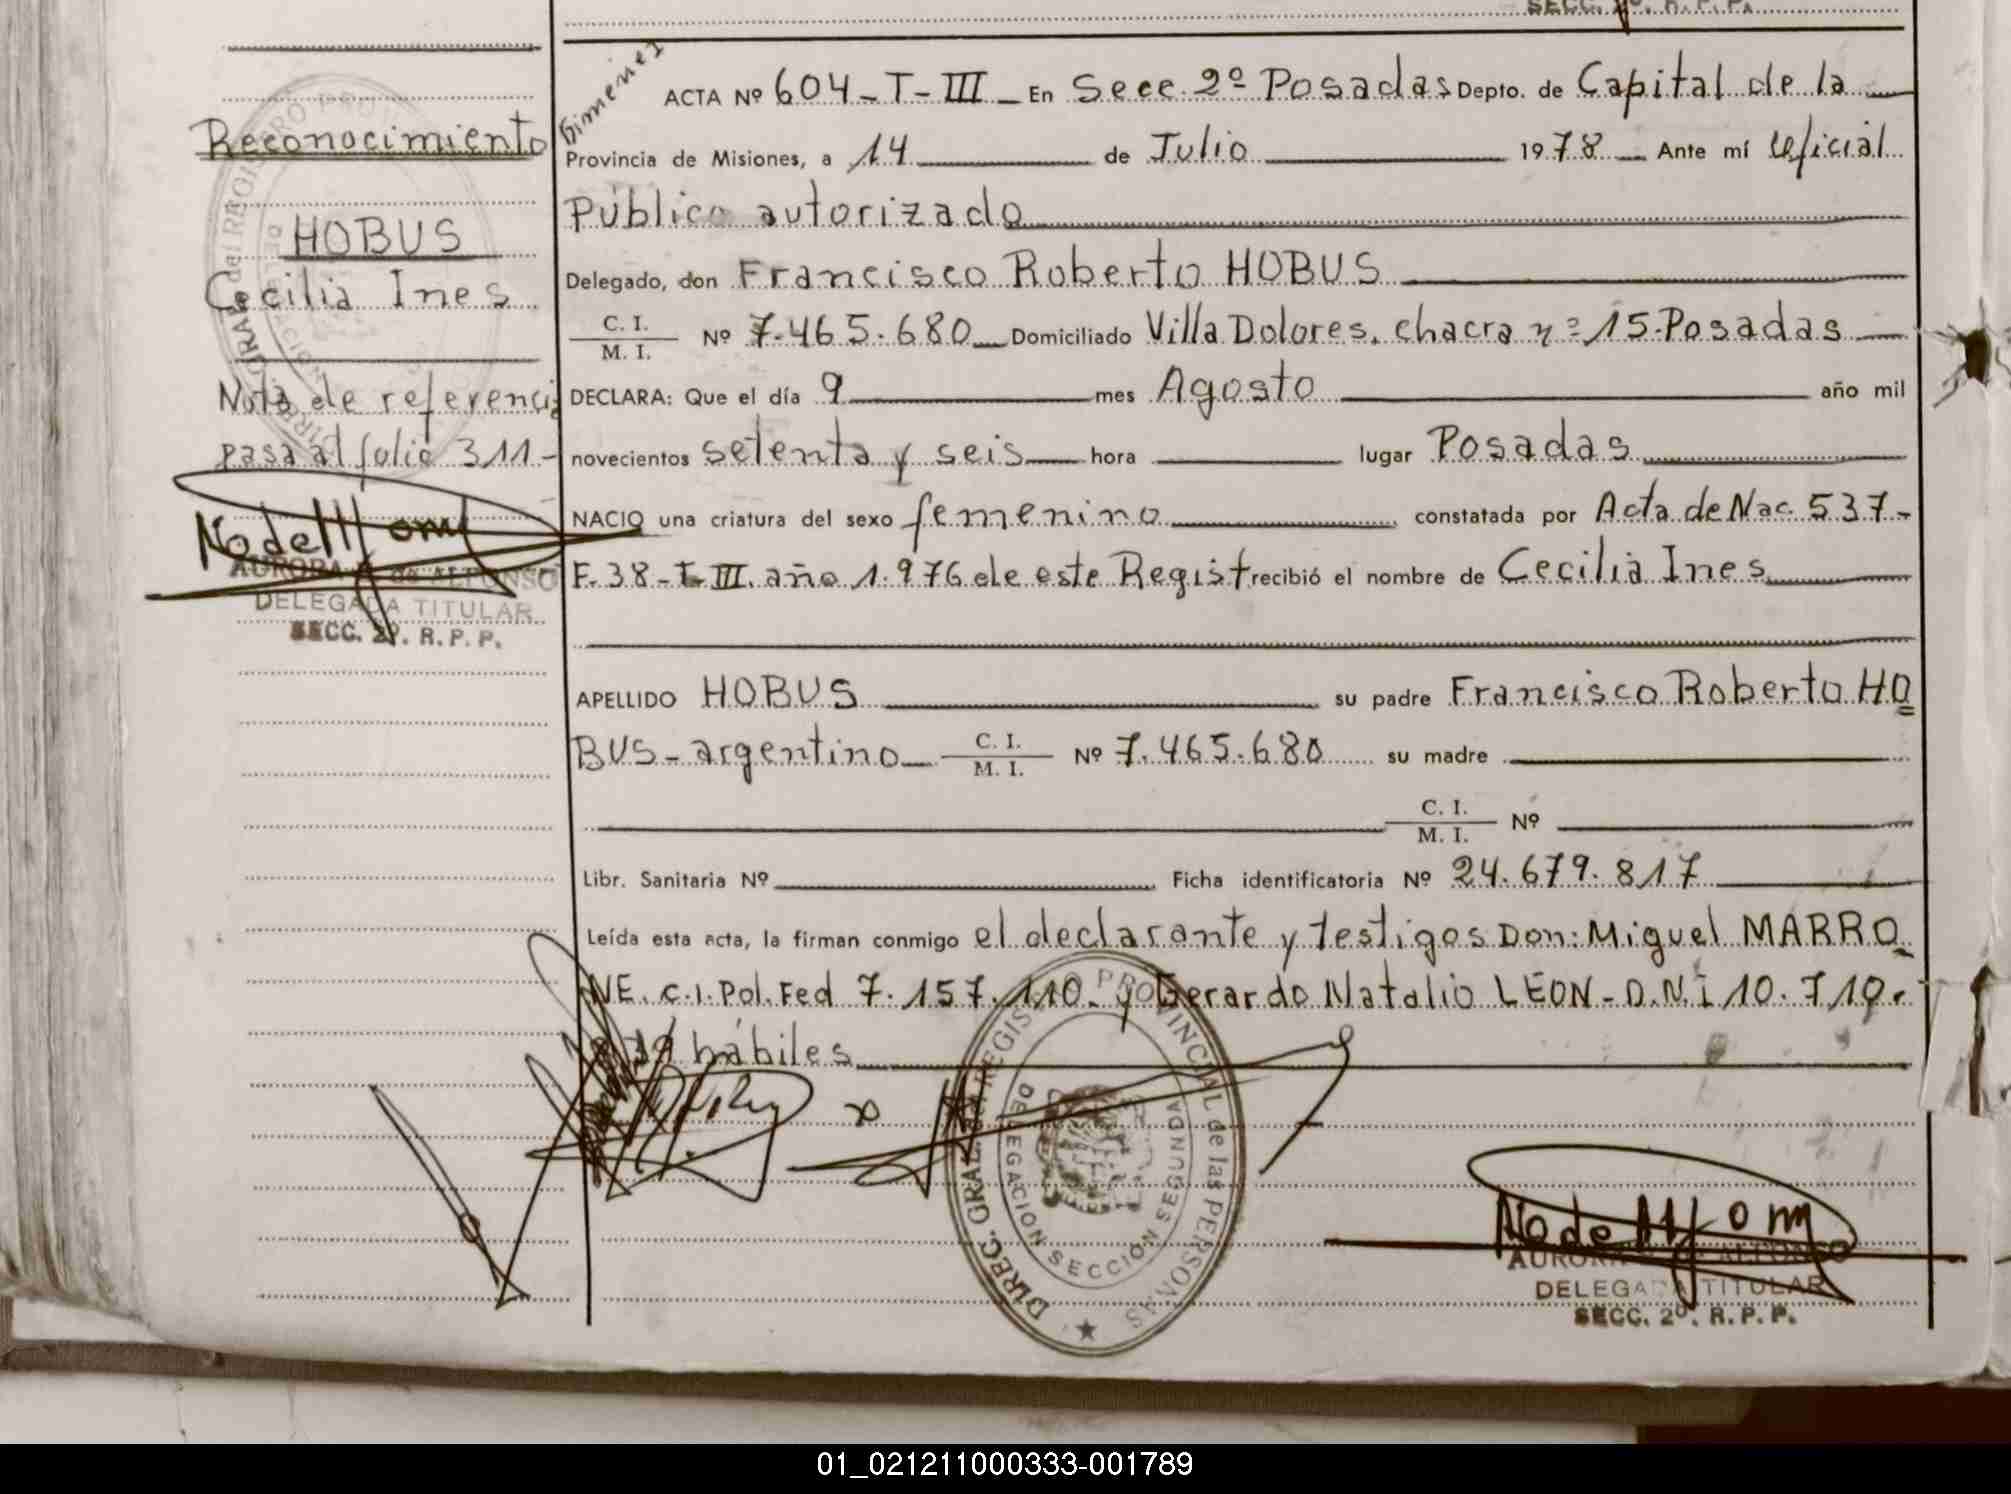 SECC. 2º. R. P. P.
Gimenez
ACTA Nº 604-T-III- En Secc. 2º Posadas Depto. de Capital de la
Provincia de Misiones, a 14 de Julio 1978 Ante mí oficial
Público autorizado
Delegado, don Francisco Roberto HOBUS
C. I.
M. I. Nº 7.465.680 Domiciliado Villa Dolores. chacra nº 15-Posadas
DECLARA: Que el día 9 mes Agosto año mil
novecientos setenta y seis hora lugar Posadas
NACIO una criatura del sexo femenino constatada por Acta de Nac. 537-
F. 38-T-III. año 1.976 de este Regist recibió el nombre de Cecilia Ines
APELLIDO HOBUS su padre Francisco Roberto HO
BUS-argentino C. I.
M. I. Nº 7.465.680 su madre
C. I.
M. I. Nº
Libr. Sanitaria Nº Ficha identificatoria Nº 24.679.817
Leída esta acta, la firman conmigo el declarante y testigos Don: Miguel MARRO
NE. C.I. Pol. Fed 7.157.110. y Gerardo Natalio LEON-D.N.I 10.710.
hábiles
Reconocimiento
HOBUS
Cecilia Ines
Nota de referenci
pasa al folio 311.-
AURORA de ALFONSO
DELEGADA TITULAR
SECC. 2º. R. P. P.
DIREC. GRAL. del REGISTRO PROVINCIAL de las PERSONAS
DELEGACION SECCION SEGUNDA
AURORA ALFONSO
DELEGADA TITULAR
SECC. 2º. R. P. P.
01_021211000333-001789